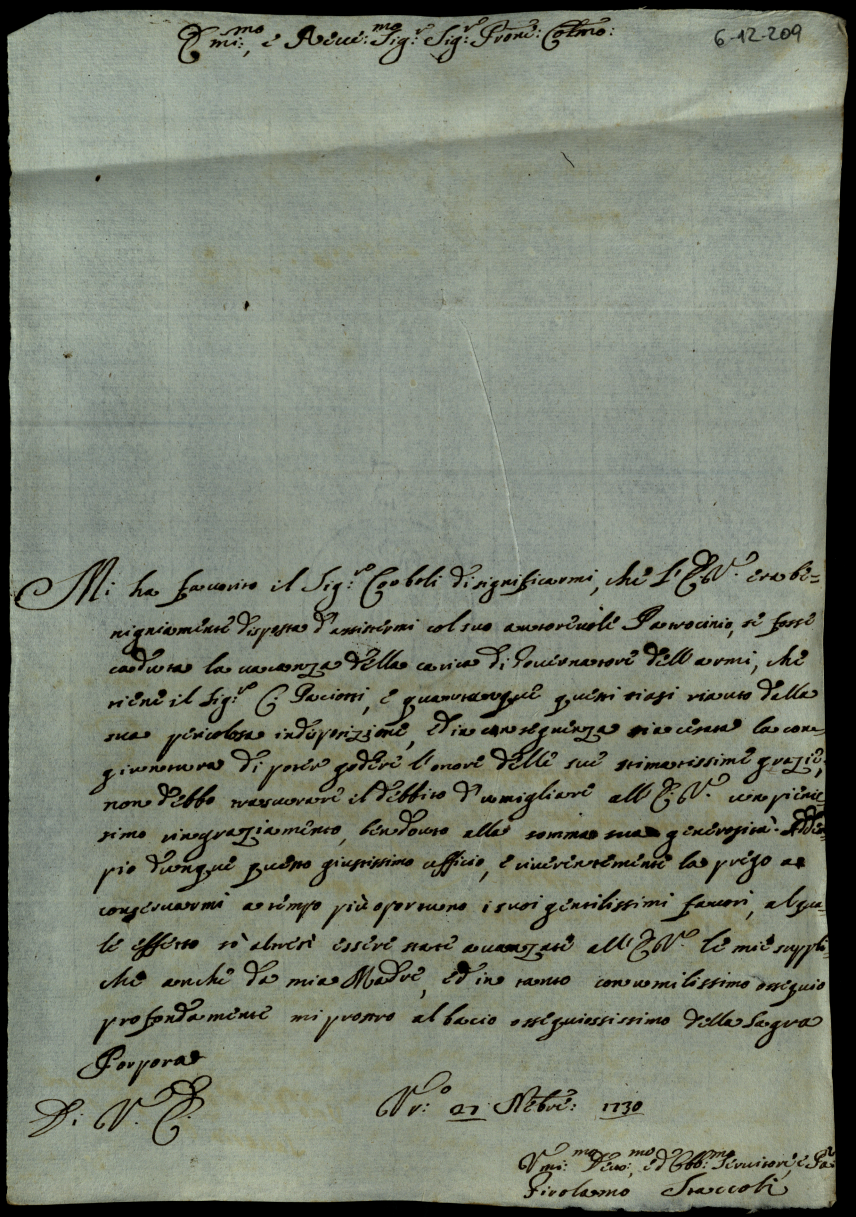 Em̃i:mo, e Reve:mo Sig:r Sig:r Prone: Colmo:
6-12-209
Mi ha favorito il Sig:r Cooboli di significarmi, che l'E. V. era be=
nignamente disposta d'assistermi col suo autorevole Patrocinio, se fosse
caduta la vacanza della carica di Governatore dell'armi, che
tiene il Sig:r C. Paciotti, e quantunque questi siasi riavuto dalla
sua pericolosa indisposizione, ed in conseguenza sia cessata la con=
giuntura di poter godere l'onore delle sue stimatissime grazie,
non debbo trascurare il debbito d'umigliare all'E. V. un pienis=
simo ringraziamento, ben dovuto alla somma sua generosità. Adem=
pio dunque questo giustissimo ufficio, e riverentemente la prego a
conservarmi a tempo più oportuno i suoi gentilissimi favori, al qua=
le effetto sò altresì essere state avanzate all'E. V. le mie suppli=
che anche da mia Madre, ed in tanto con umilissimo ossequio
profondamente mi prostro al bacio ossequiosissimo della Sagra
Porpora
Di V. E.
Ur:o 27 Nebre: 1730
Umi:mo Devo:mo, ed Obb:mo Servitore, e
Girolamo Staccoli